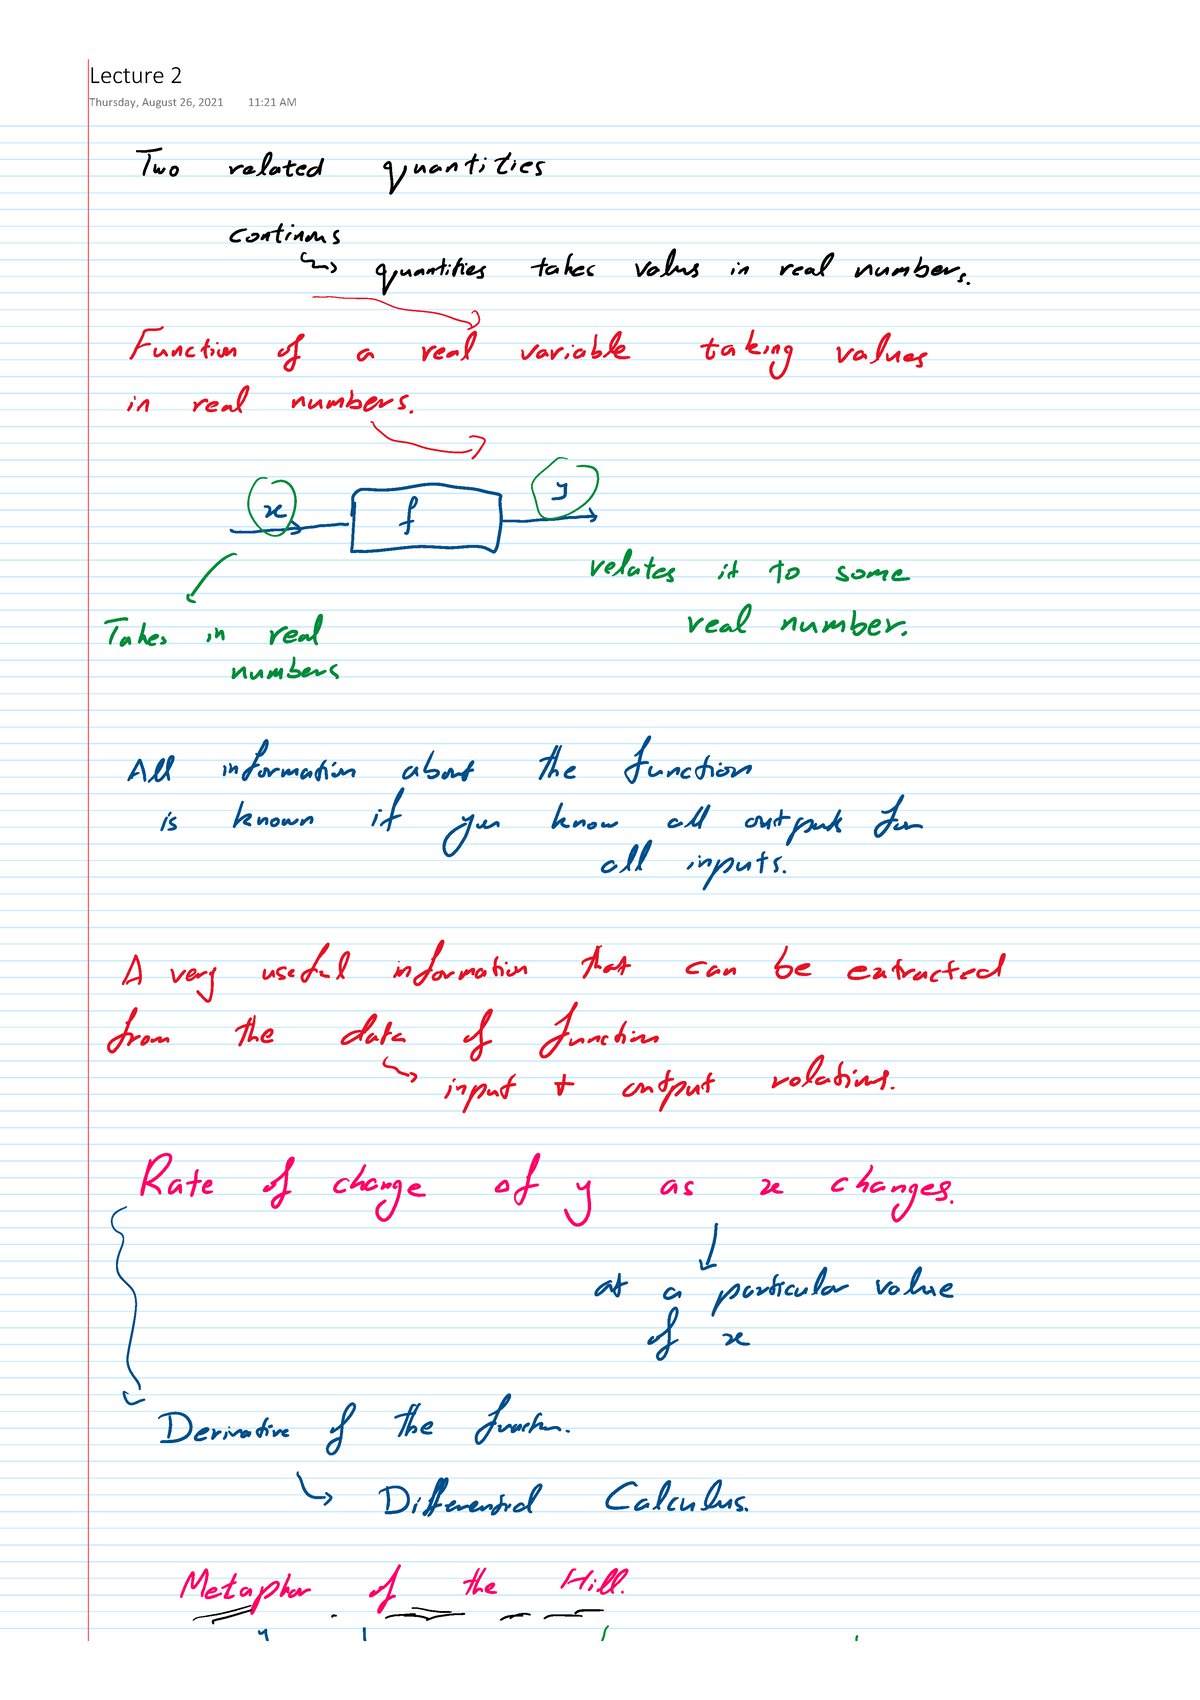 Lecture 2
Thursday, August 26, 2021 11:21 AM
Two related quantities
continus
quantities takes valus in real numbers.
Function of a real variable taking values
in real numbers.
x f y
relates it to some
real number.
Takes in real
numbers
All information about the function
is known if you know all outputs for
all inputs.
A very useful information that can be extracted
from the data of function
input + output relations.
Rate of change of y as x changes.
at a particular value
of x
Derivative of the function.
Differential Calculus.
Metaphor of the Hill.